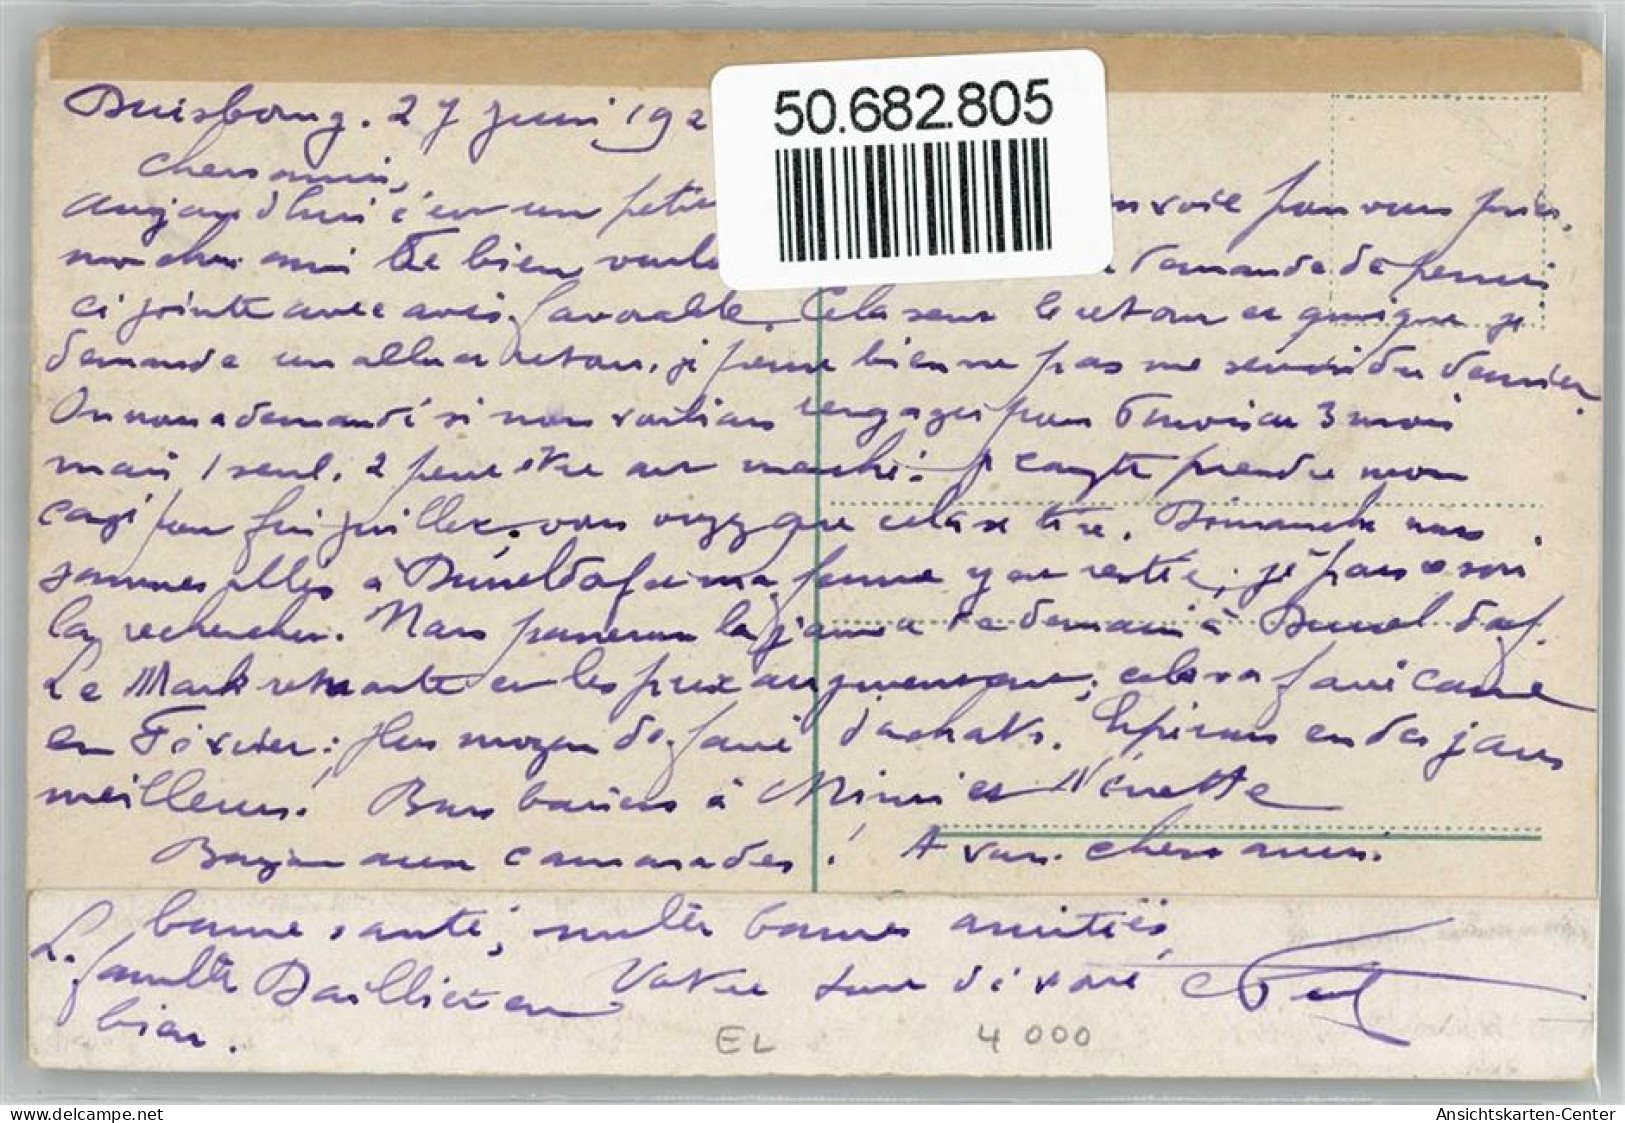 Duisbourg. 27 juin 192
50.682.805
Chers amis,
aujourd'hui c'est un petit voie pour vous prier,
mon cher ami de bien voulo demande de permis
ci jointe avec avis favorable. Cela sera le retour et quoique je
demande un aller et retour, je pense bien ne pas me servir du dernier.
On nous a demandé si nous voulions rengager pour 6 mois ou 3 mois
mais 1 seul, 2 peut être ont marché. Je compte prendre mon
congé pour fin juillet, vous voyez que cela se tire. Dimanche nous
sommes allés à Düsseldorf et ma femme y est restée, je pars ce soir
la rechercher. Nous passerons la journée de demain à Dusseldorf.
Le Mark remonte et les prix augmentent; cela va faire comme
en Février: plus moyen de faire d'achats. Espérons en des jours
meilleurs! Bons baisers à Mimi et Nénette
Bonjour aux camarades! A vous chers amis,
bonne santé, multes bonnes amitiés,
La famille Daillier va bien.
Votre tout dévoué Paul
EL 4 000
www.delcampe.net
Ansichtskarten-Center